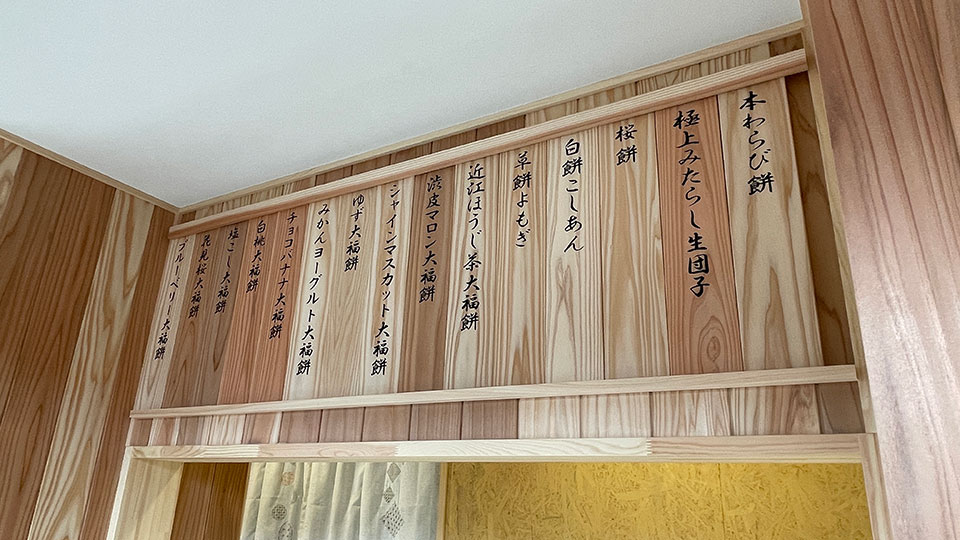 本わらび餅
極上みたらし生団子
桜餅
白餅こしあん
草餅よもぎ
近江ほうじ茶大福餅
渋皮マロン大福餅
シャインマスカット大福餅
ゆず大福餅
みかんヨーグルト大福餅
チョコバナナ大福餅
白桃大福餅
塩こし大福餅
花見桜大福餅
ブルーベリー大福餅